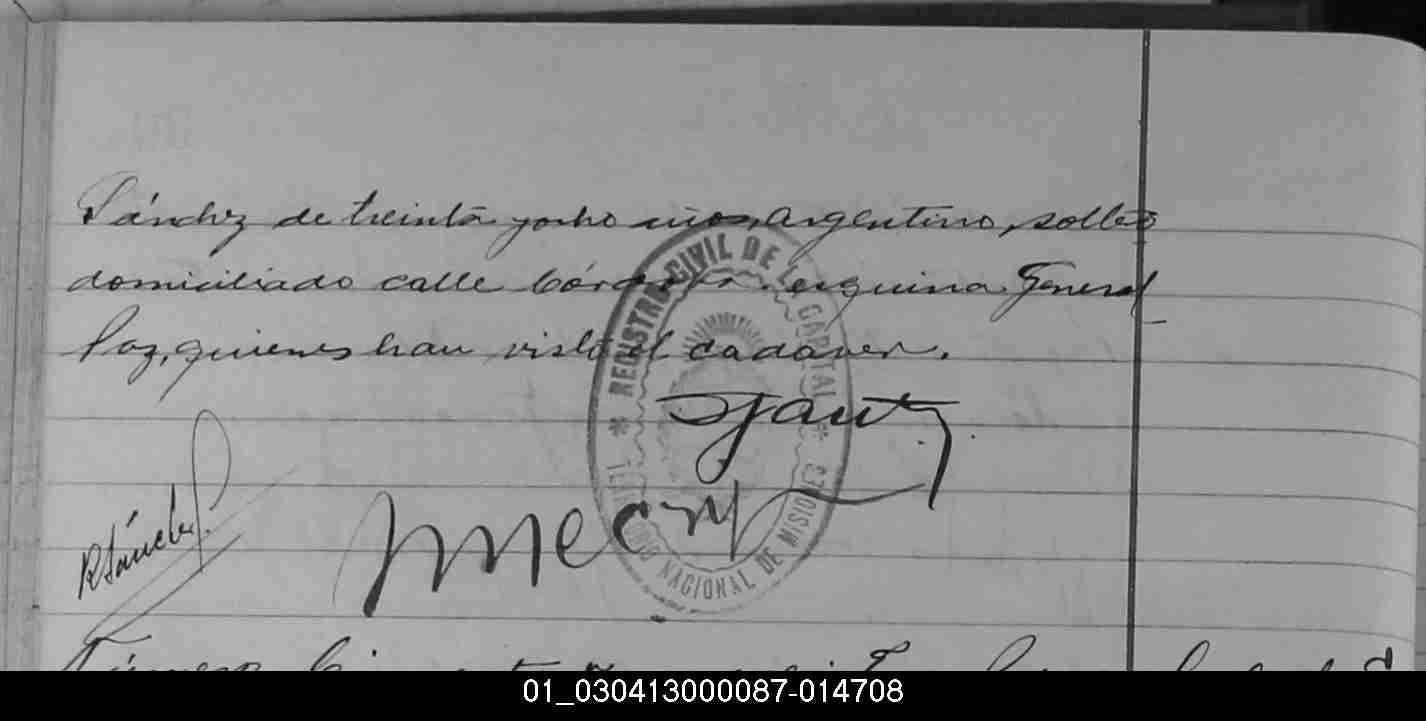 Sánchez de treinta y ocho años, argentino, soltero
domiciliado calle Córdoba esquina General
Paz, quienes han visto el cadáver.
REGISTRO CIVIL DE LA CAPITAL
TERRITORIO NACIONAL DE MISIONES
RSánchez
01_030413000087-014708